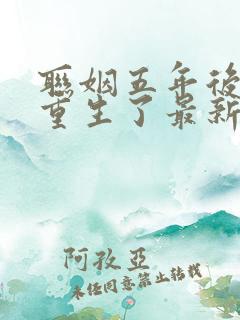 聯姻五年後
重生了最新
阿孜亞
未经同意禁止转载